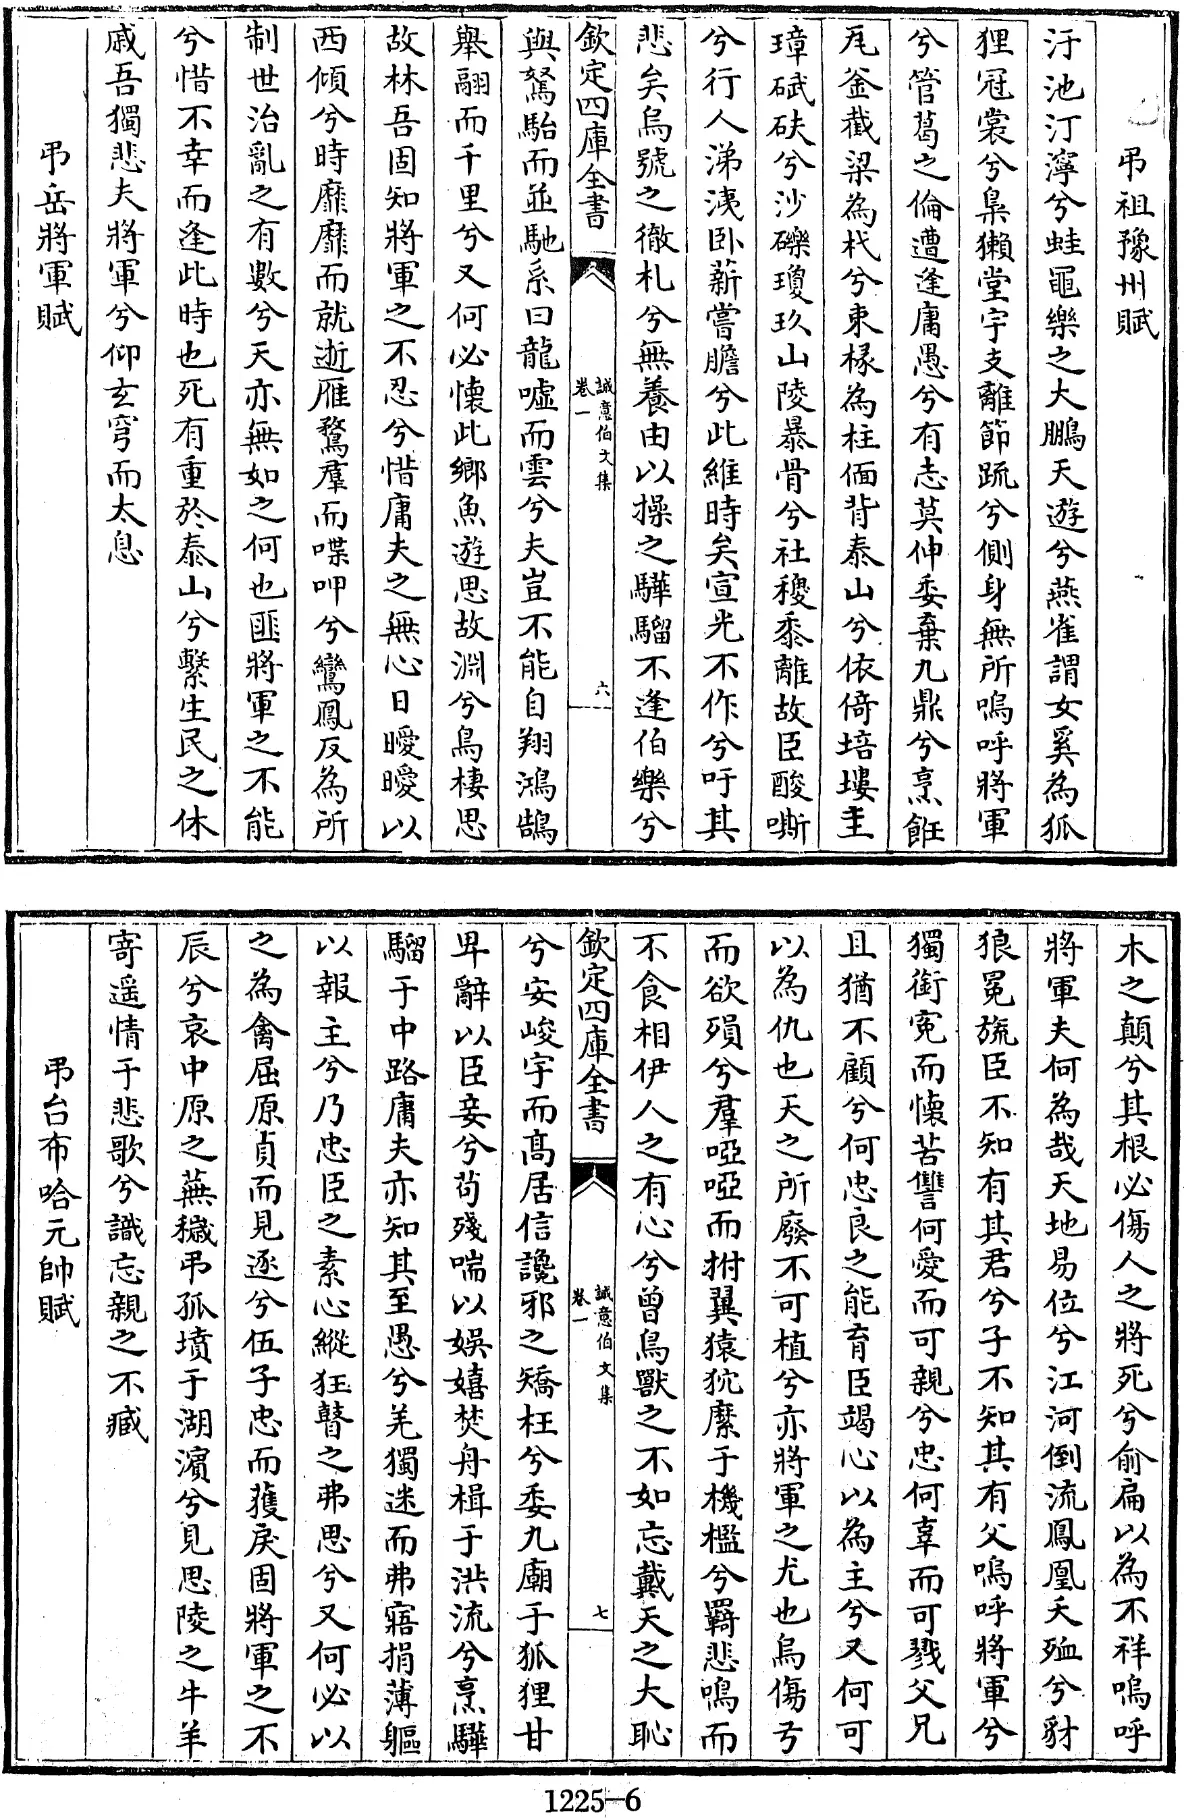 弔祖豫州賦
汙池汀濘兮蛙黽樂之大鵬天遊兮燕雀謂女奚為狐
狸冠裳兮梟獺堂宇支離節疏兮側身無所嗚呼將軍
兮管葛之倫遭逢庸愚兮有志莫伸委棄九鼎兮烹飪
瓦釜截梁為杙兮束椽為柱偭背泰山兮依倚培塿圭
璋碔砆兮沙礫瓊玖山陵暴骨兮社稷黍離故臣酸嘶
兮行人涕洟臥薪嘗膽兮此維時矣宣光不作兮吁其
悲矣烏號之徹札兮無養由以操之驊騮不逢伯樂兮
欽定四庫全書
誠意伯文集
卷一
六
與駑駘而並馳系曰龍噓而雲兮夫豈不能自翔鴻鵠
舉翮而千里兮又何必懷此鄉魚遊思故淵兮鳥棲思
故林吾固知將軍之不忍兮惜庸夫之無心日曖曖以
西傾兮時靡靡而就逝雁鶩羣而喋呷兮鸞鳳反為所
制世治亂之有數兮天亦無如之何也匪將軍之不能
兮惜不幸而逢此時也死有重於泰山兮繫生民之休
戚吾獨悲夫將軍兮仰玄穹而太息
弔岳將軍賦
木之顛兮其根必傷人之將死兮俞扁以為不祥嗚呼
將軍夫何為哉天地易位兮江河倒流鳳凰夭殈兮豺
狼冕旒臣不知有其君兮子不知其有父嗚呼將軍兮
獨銜冤而懷苦讐何愛而可親兮忠何辜而可戮父兄
且猶不顧兮何忠良之能育臣竭心以為主兮又何可
以為仇也天之所廢不可植兮亦將軍之尤也烏傷弓
而欲殞兮羣啞啞而拊翼猿狖縻于機檻兮羇悲鳴而
不食相伊人之有心兮曾鳥獸之不如忘戴天之大恥
欽定四庫全書
誠意伯文集
卷一
七
兮安峻宇而高居信讒邪之矯枉兮委九廟于狐狸甘
卑辭以臣妾兮苟殘喘以娛嬉焚舟楫于洪流兮烹驊
騮于中路庸夫亦知其至愚兮羌獨迷而弗寤捐薄軀
以報主兮乃忠臣之素心縱狂瞽之弗思兮又何必以
之為禽屈原貞而見逐兮伍子忠而獲戾固將軍之不
辰兮哀中原之蕪穢弔孤墳于湖濱兮見思陵之牛羊
寄遥情于悲歌兮識忘親之不臧
弔台布哈元帥賦
1225-6